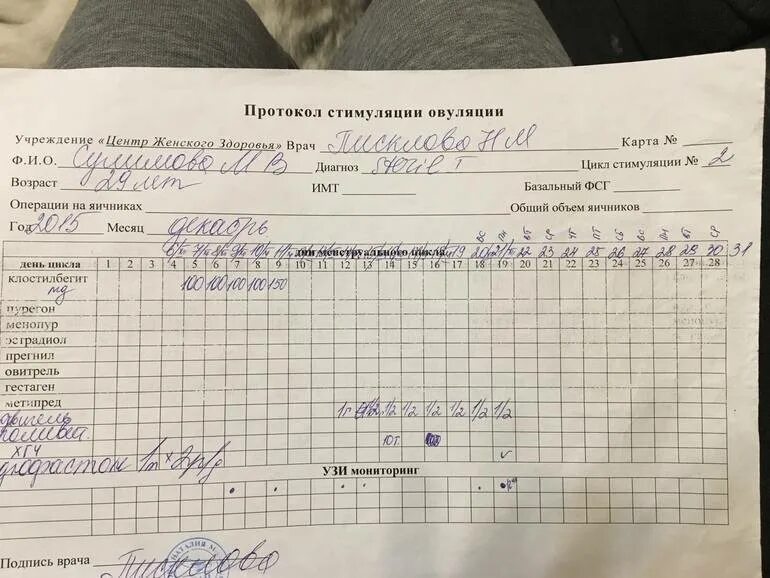 Протокол стимуляции овуляции
Учреждение «Центр Женского Здоровья» Врач Писклова НМ Карта №
Ф.И.О. Сулимова М В Диагноз Steril I Цикл стимуляции № 2
Возраст 29 лет ИМТ Базальный ФСГ
Операции на яичниках Общий объем яичников
Год 2015 Месяц декабрь
вс пн вт ср чт пт сб вс пн вт ср
дни менструального цикла 19 20 22 23 24 25 26 27 28 29 30 31
день цикла 1 2 3 4 5 6 7 8 9 10 11 12 13 14 15 16 17 18 19 20 21 22 23 24 25 26 27 28
клостилбегит 100 100 100 100 150
мд
пурегон
менопур
эстрадиол
прегнил
овитрель
гестаген
метипред 1т 1/2 1/2 1/2 1/2 1/2 1/2 1/2
10т.
ХГЧ
дюфастон 1т × 2р/д
УЗИ мониторинг
Подпись врача Писклова
НАТАЛИЯ М